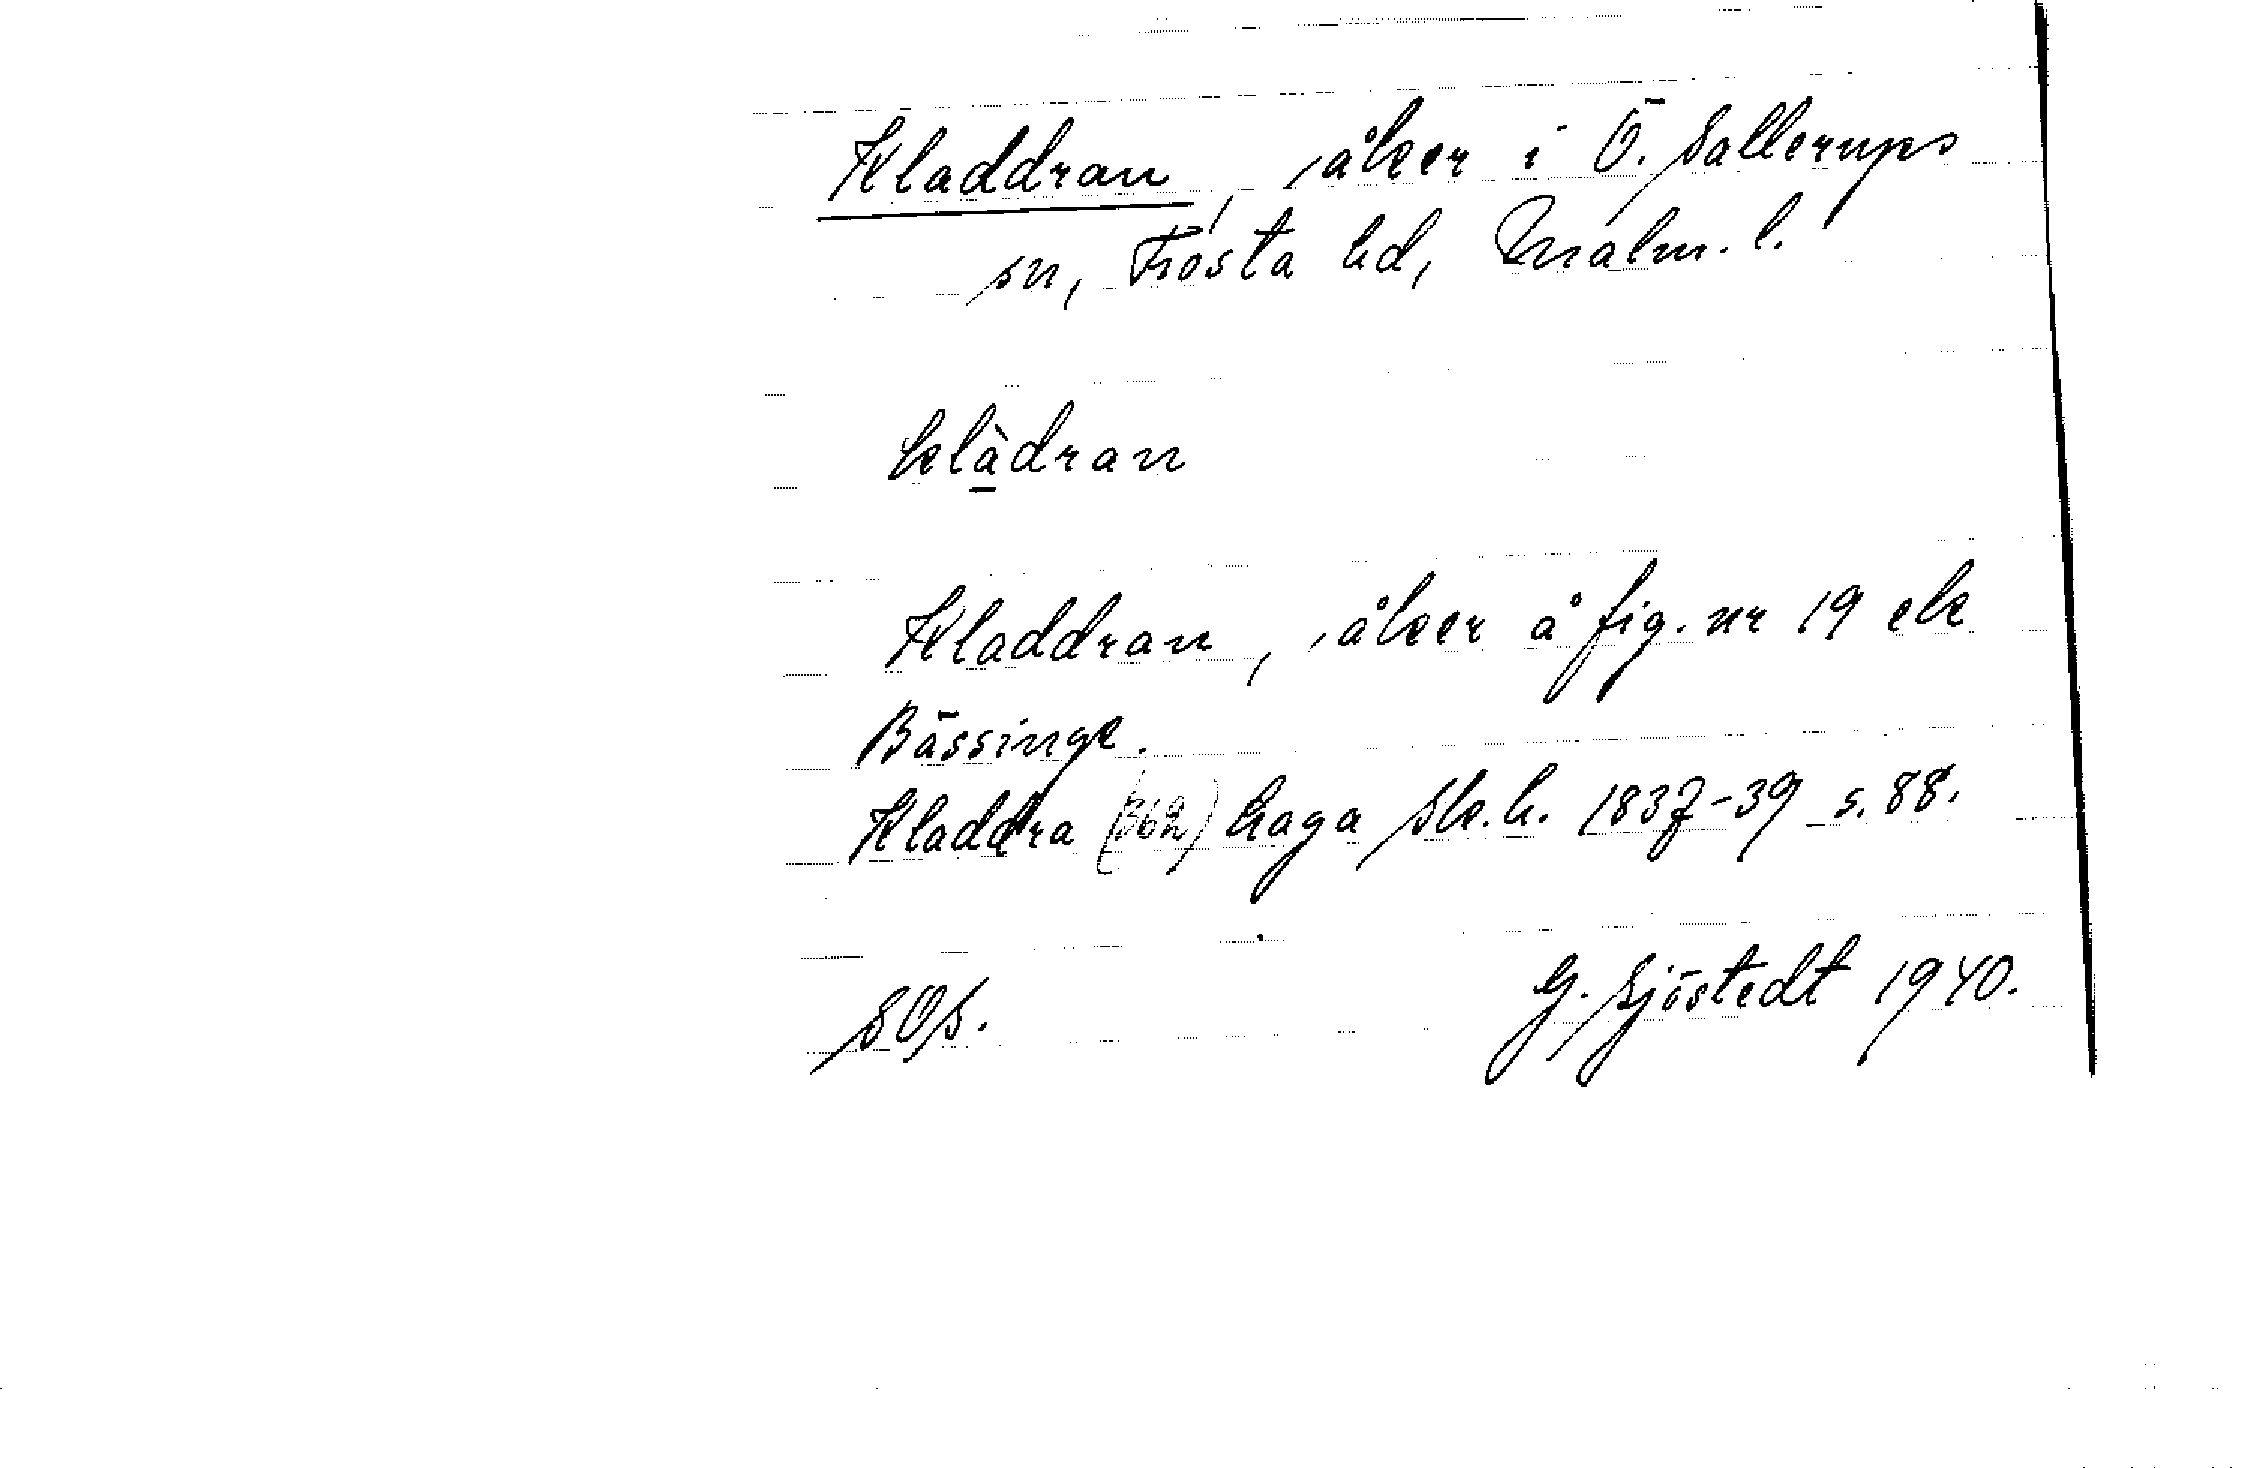 Kladdran, åker i Ö. Sallerups
sn, Frosta hd, Malm. l.
klàdran
Kladdran, åker å fig. nr 19 ek
Bässinge.
Kladdra (362) haga Sk.h. 1837-39 s. 88.
SOS. G. Sjöstedt 1940.